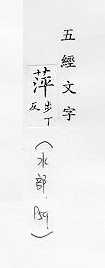 五經文字
萍 步丁反 (水部, P59)